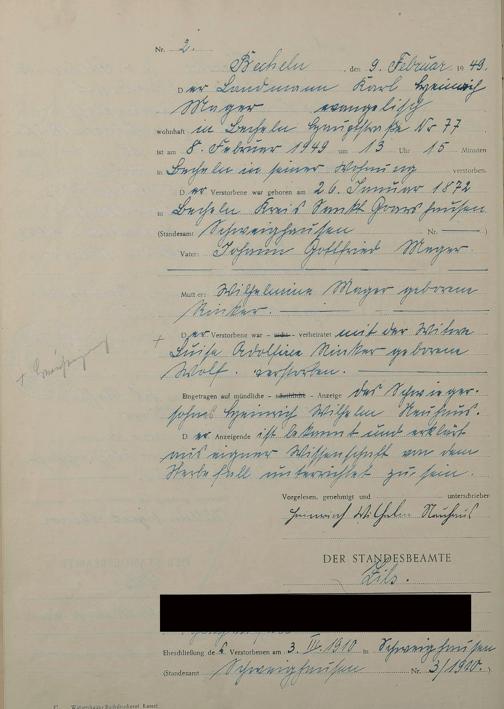 Nr. 2.
Becheln, den 9. Februar 1949.
Der Landmann Karl Heinrich
Mager evangelisch
wohnhaft in Becheln Hauptstraße Nr 77
ist am 8. Februar 1949 um 13 Uhr 15 Minuten
in Becheln in seiner Wohnung verstorben.
Der Verstorbene war geboren am 26. Januar 1872
in Becheln Kreis Sankt Goarshausen
(Standesamt Schweighausen Nr. —)
Vater: Johann Gottfried Mager
Mutter: Wilhelmine Mager geborene
Rinker.
Der Verstorbene war – nicht – verheiratet mit der Witwe
Luise Adolfine Rinker geborene
Wolf. verstorben.
Eingetragen auf mündliche – schriftliche – Anzeige des Schwieger-
sohns Heinrich Wilhelm Neuhaus.
Der Anzeigende ist bekannt und erklärt
aus eigner Wissenschaft von dem
Sterbefall unterrichtet zu sein.
Vorgelesen, genehmigt und unterschrieben
Heinrich Wilhelm Neuhaus
DER STANDESBEAMTE
Zils.
Eheschließung des Verstorbenen am 3. IV. 1910 in Schweighausen
(Standesamt Schweighausen Nr. 3/1910.)